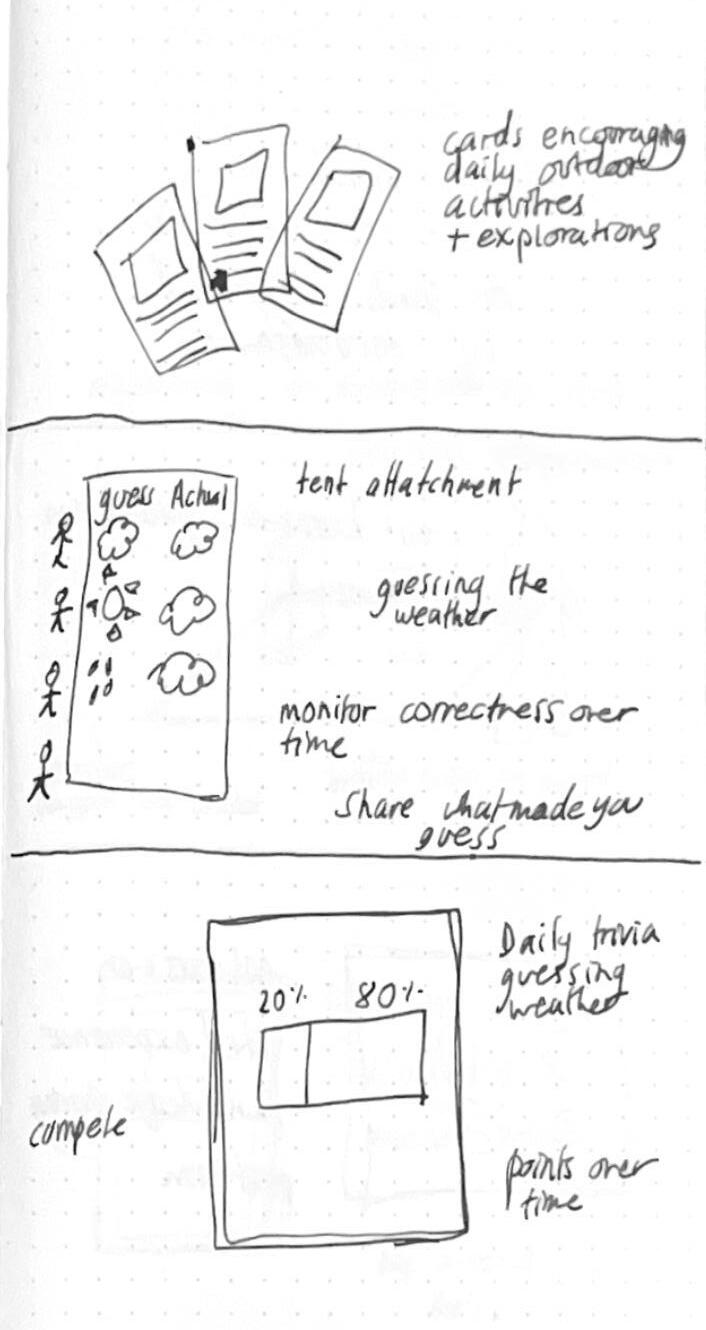 cards encouraging
daily outdoor
activities
+ explorations
guess Actual
tent attatchment
guessing the
weather
monitor correctness over
time
Share what made you
guess
20% 80%
Daily trivia
guessing
weather
compete
points over
time